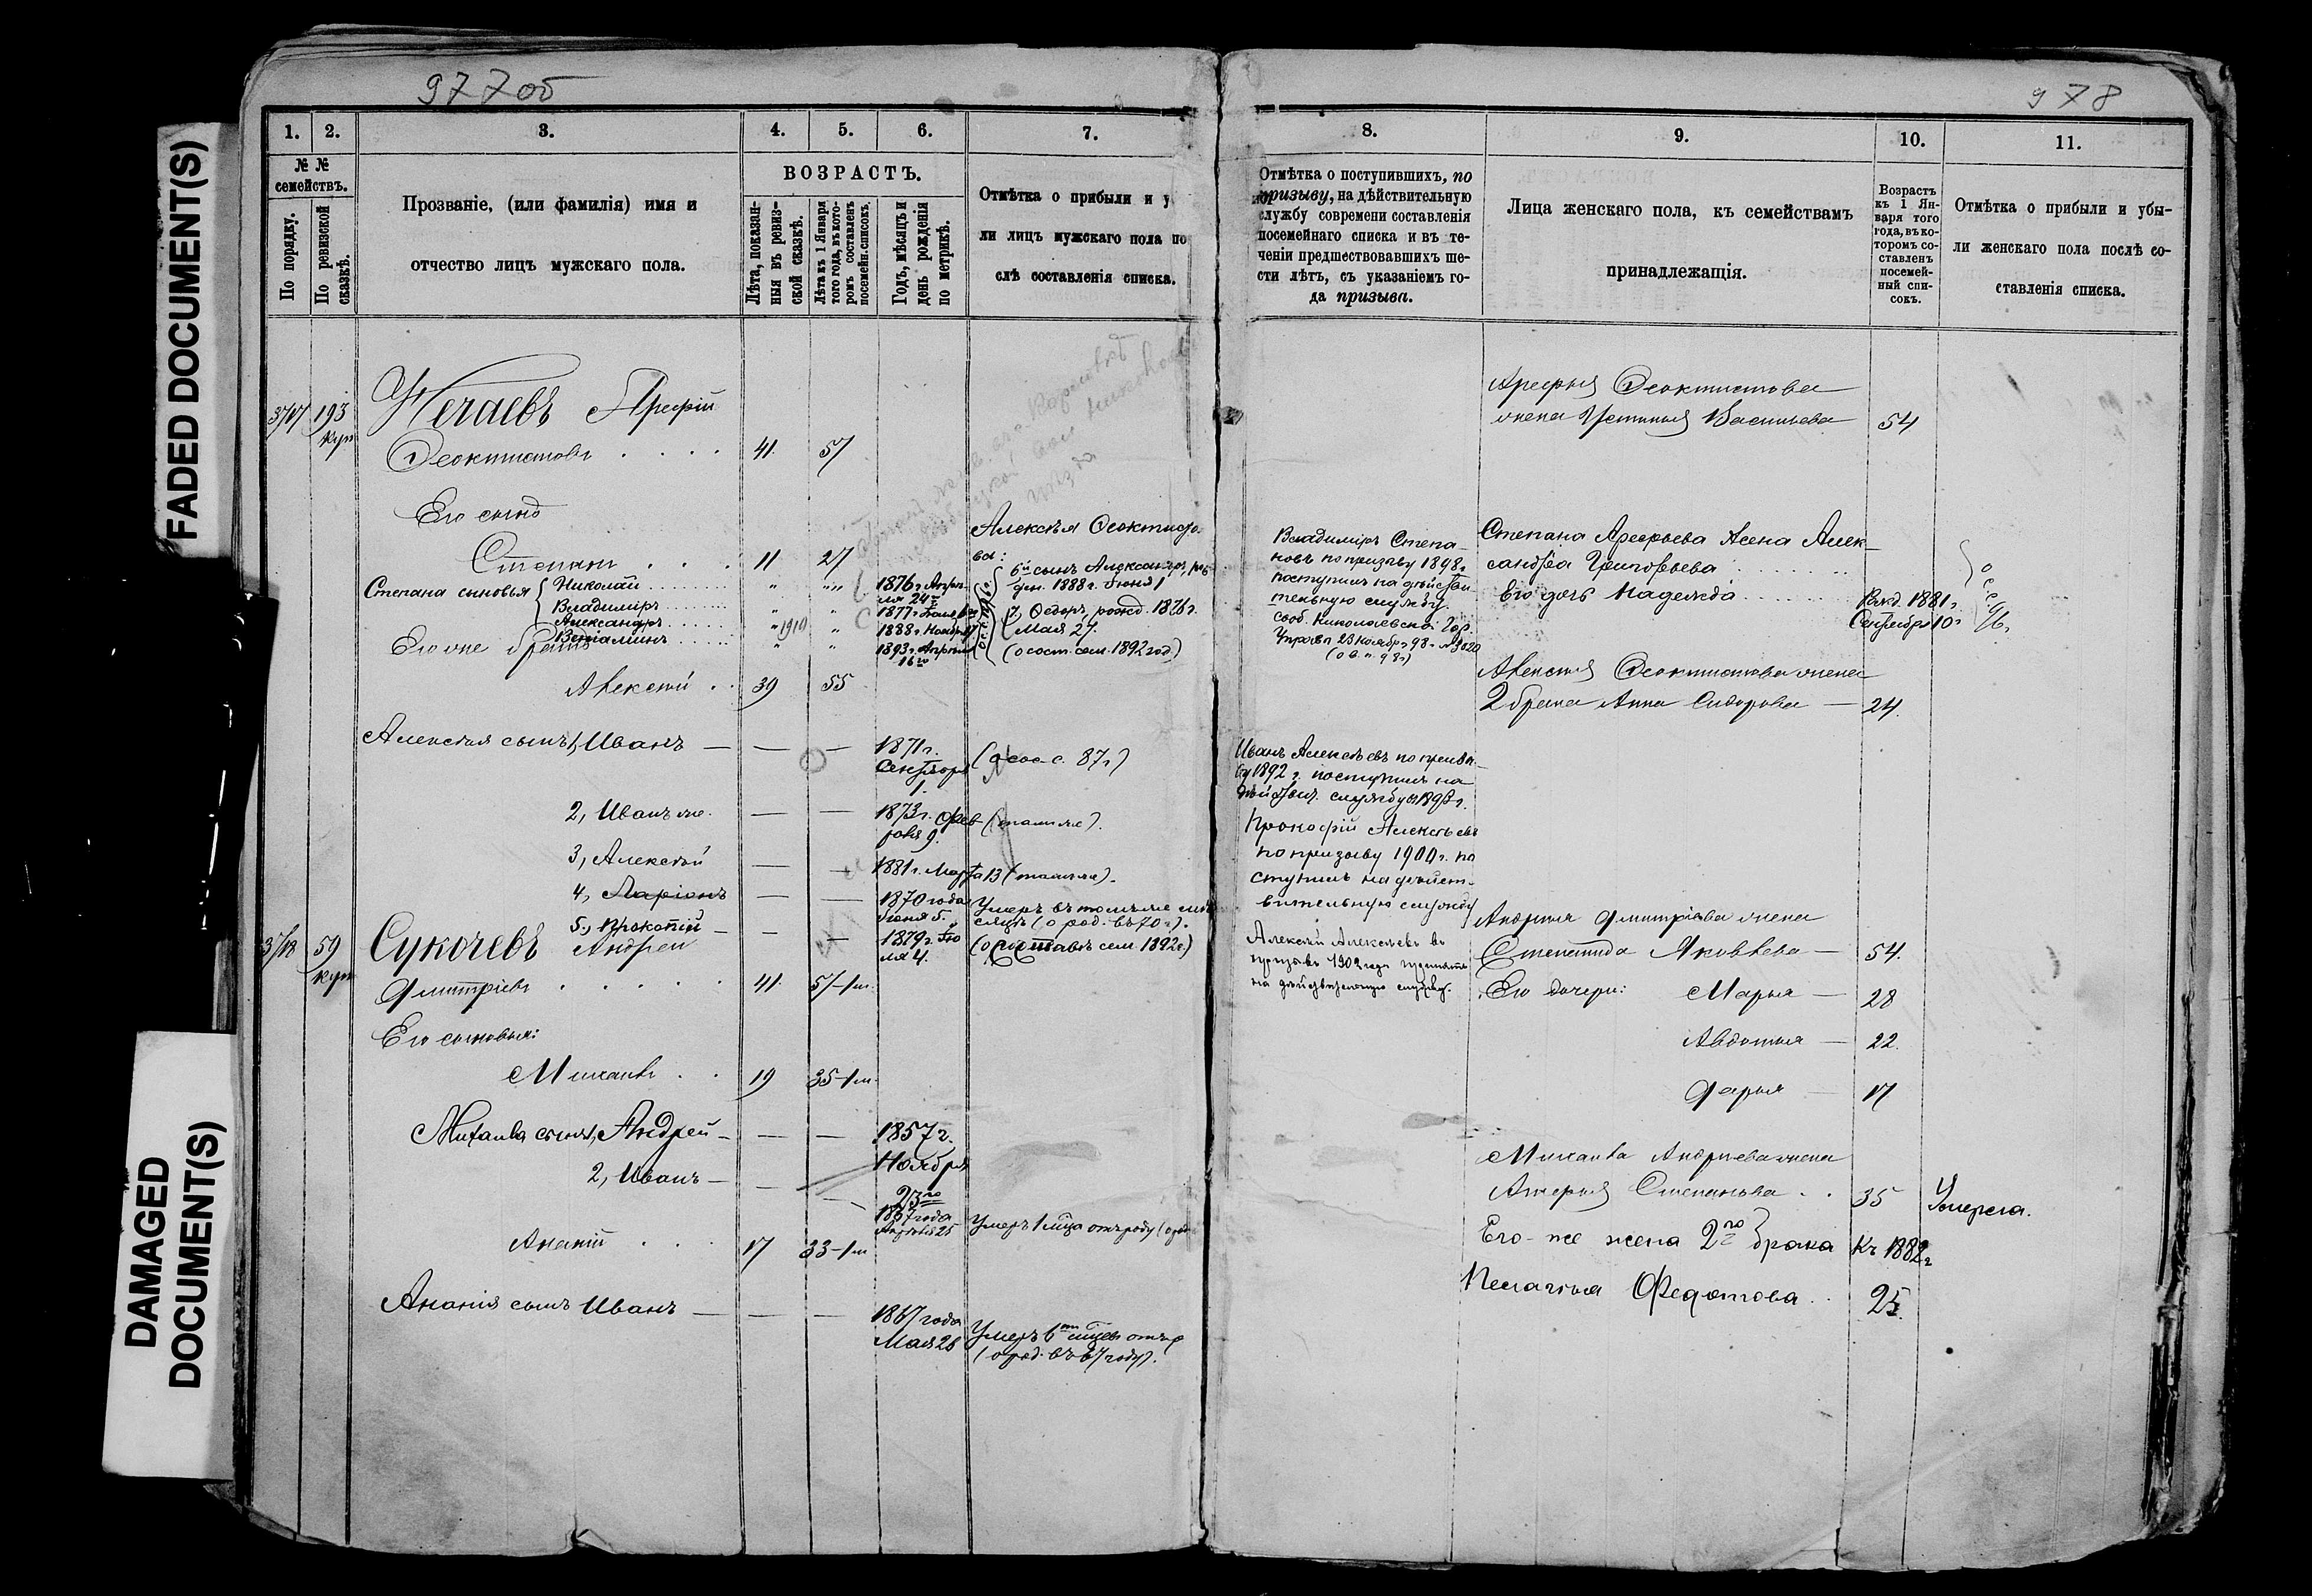 FADED DOCUMENT(S)
DAMAGED
DOCUMENT(S)
977 об
978
1. 2. 3. 4. 5. 6. 7.
№ №
семействъ.
По порядку.
По ревизской
сказкѣ.
Прозваніе, (или фамилія) имя и
отчество лицъ мужскаго пола.
ВОЗРАСТЪ.
Лѣта, показан-
ныя въ ревиз-
ской сказкѣ.
Лѣта къ 1 Января
того года, въ кото-
ромъ составленъ
посемейн. списокъ.
Годъ, мѣсяцъ и
день рожденія
по метрикѣ.
Отмѣтка о прибыли и у
ли лицъ мужскаго пола по
слѣ составленія списка.
193
Нечаевъ Арефій
Феоктистовъ 41. 57
Его сынъ
Степанъ 11 27
Степана сыновья Николай
Владиміръ
Александръ
Веніаминъ
1876 г. Апрѣ-
ля 24
1888 г. Ноября
1893 г. Апрѣля
16го
Алексѣя Феоктисто-
ва:
6й сынъ Александръ,
1888 г. Іюня 1
7, Ѳедоръ, рожд. 1876 г.
Мая 27.
(о сост. сем. 1892 год.)
Алексѣй 39 55
Алексѣя сынъ 1, Иванъ — — —
1871 г.
Сентября
1.
2, Иванъ же. — —
1873 г. Фев-
раля 9.
(тамже).
3, Алексѣй —
1881 г. Марта 13 (тамже).
4, Ларіонъ — —
1870 года
Іюня 5.
Умеръ въ томъ же мѣ-
сяцѣ (о род. въ 70 г.).
5, Прокопій — — —
1879 г. Ію-
ля 4.
(о составѣ сем. 1892 г.)
59
Сукочевъ Андрей
Дмитріевъ 41. 57-1 м.
Его сыновья:
Михаилъ 19 35-1 м.
Михаила сынъ 1, Андрей — — —
1857 г.
Ноября
23го
2, Иванъ — — —
1867 года
Умеръ 1 мца отъ роду
Ананій 17 33-1 м
Ананія сынъ Иванъ — — —
1867 года
Мая 26
Умеръ 6ти мцевъ отъ р
(о род. въ 67 году).
8. 9. 10. 11.
Отмѣтка о поступившихъ, по
призыву, на дѣйствительную
службу современи составленія
посемейнаго списка и въ те-
ченіи предшествовавшихъ ше-
сти лѣтъ, съ указаніемъ го-
да призыва.
Лица женскаго пола, къ семействамъ
принадлежащія.
Возрастъ
къ 1 Ян-
варя того
года, въ ко-
торомъ со-
ставленъ
посемей-
ный спи-
сокъ.
Отмѣтка о прибыли и убы-
ли женскаго пола послѣ со-
ставленія списка.
Арефья Феоктистова
жена Устинья Васильева 54
Владиміръ Степа-
новъ по призыву 1898 г.
поступилъ на дѣйстви-
тельную службу.
Степана Арефьева жена Алек-
сандра Григорьева
Его дочь Надежда
Рожд. 1881 г.
Сентября 10
Алексѣя Феоктистова жена
2 брака Анна Сидорова — 24.
Иванъ Алексѣевъ по призы-
ву 1892 г. поступилъ на
дѣйствит. службу
Прокофій Алексѣевъ
по призыву 1900 г. по
ступилъ на дѣйст-
вительную службу
Алексѣй Алексѣевъ въ
призывъ 1902 года принятъ
на дѣйствительную службу.
Андрея Дмитріева жена
Степанида Яковлева — 54.
Его дочери: Марья — 28
Авдотья — 22.
Дарья — 17
Михаила Андреева жена
Степанова 35 Умерла.
Его-же жена 2го брака Къ 1882 г
Пелагея Федотова 25.